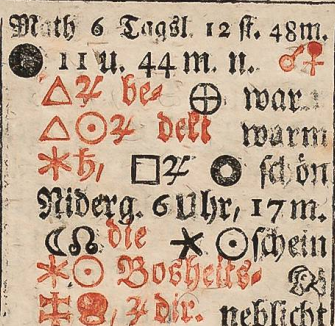 Math 6 Tagsl. 12 st. 48m.
● 11 u. 44 m. n. ♂♀
△♃ be- ⊕ war
△☉♃ dekt warm
✶♄, □♃ schön
Niderg. 6 Uhr, 17 m.
☾☊ die ✶ ☉schein
✶☉ Bosheits-
♃ dir. neblicht